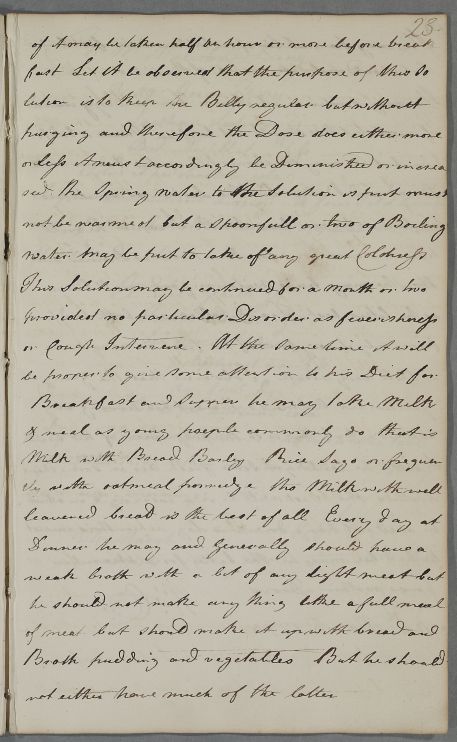 23.
of it may be taken half an hour or more before break
fast Let it be observed that the purpose of this So
lution is to keep the Belly regular but without
purging and therefore the Dose does either more
or less it must accordingly be Diminished or increa
sed. The Spring water to the Solution is put must
not be warmed but a Spoonfull or two of Boiling
water may be put to take off any great Coldness
This Solution may be continued for a month or two
provided no particular Disorder as feverishness
or Cough Intervene. At the same time it will
be proper to give some attention to his Diet for
Breakfast and Supper he may take Milk
& meal as young people commonly do that is
Milk with Bread Barley Rice Sago or frequen
tly with oatmeal porridge this Milk with well
leavened bread is the best of all Every day at
Dinner he may and Generally should have a
weak broth with a bit of any light meat but
he should not make any thing like a full meal
of meat but should make it up with bread and
Broth pudding and vegetables But he should
not either have much of the latter